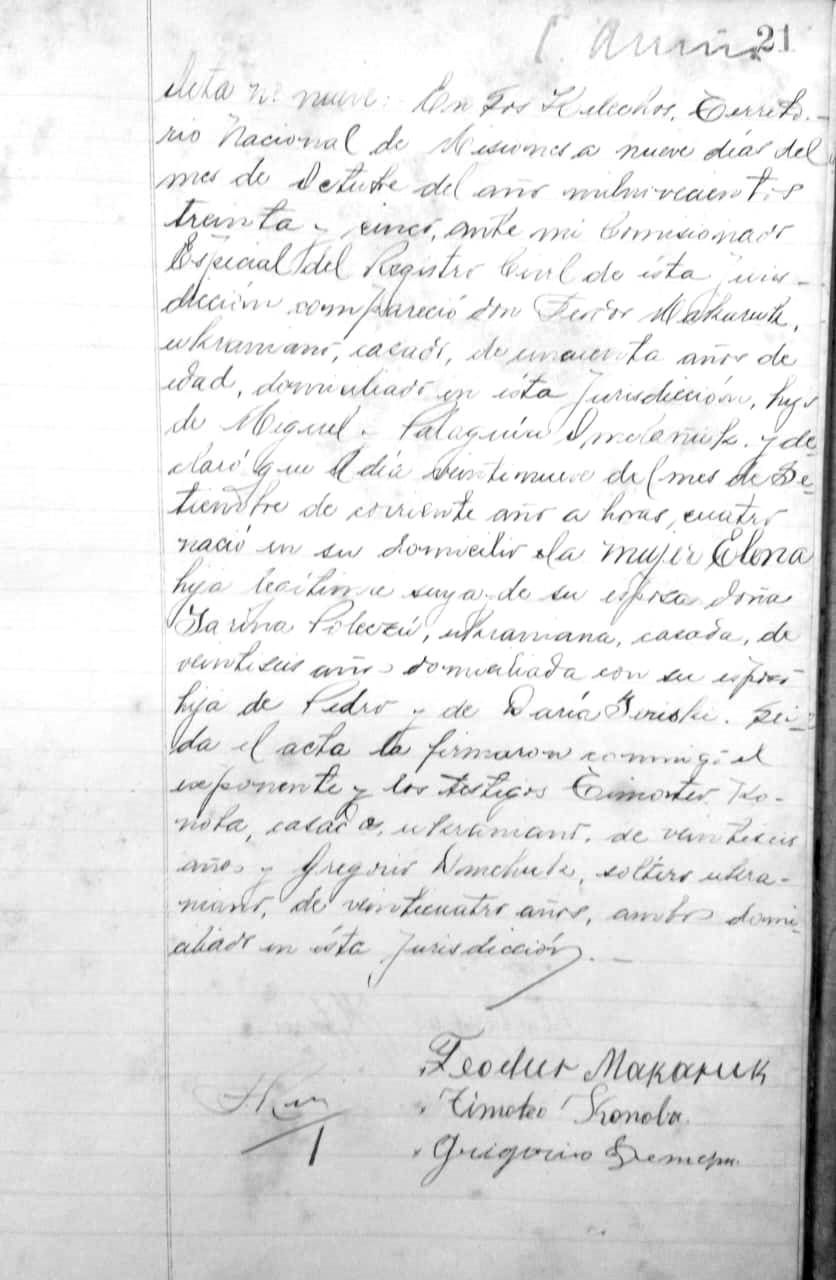 21
Acta nº nueve: En Los Helechos, Territo-
rio Nacional de Misiones a nueve días del
mes de Octubre del año milnovecientos
treinta y cinco, ante mi Comisionado
Especial del Registro Civil de ésta Juris-
dicción compareció don Feodor Makaruk,
ukraniano, casado, de cincuenta años de
edad, domiciliado en ésta Jurisdicción, hijo
de Miguel y y de-
claró que el día veintenueve del mes de Se-
tiembre de corriente año a horas cuatro
nació en su domicilio la mujer Elena
hija legítima suya y de su esposa doña
ukraniana, casada, de
veintiseis años domiciliada con su esposo
hija de Pedro y de Daría Lei-
da el acta la firmaron conmigo el
exponente y los testigos Timoteo Ko-
noba, casado, ukraniano, de veintiseis
años y Gregorio soltero ukra-
niano, de veintecuatro años, ambos domi-
ciliado en ésta Jurisdicción.
Feodor Makaruk
Timoteo Konoba.
Grigorio